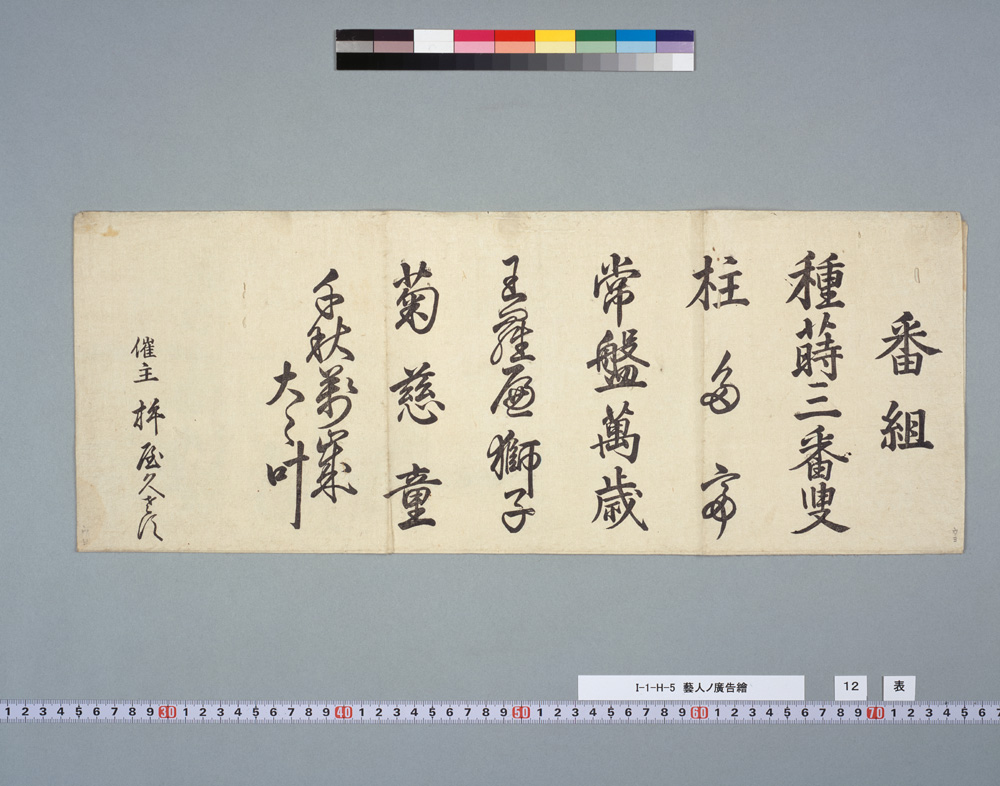 番組
種蒔三番叟
柱
常盤萬歳
獅子
菊慈童
千秋萬歳
大々叶
催主
屋久
I-1-H-5 藝人ノ廣告繪
12
表
1 2 3 4 5 6 7 8 9 30 1 2 3 4 5 6 7 8 9 40 1 2 3 4 5 6 7 8 9 50 1 2 3 4 5 6 7 8 9 60 1 2 3 4 5 6 7 8 9 70 1 2 3 4 5 6 7